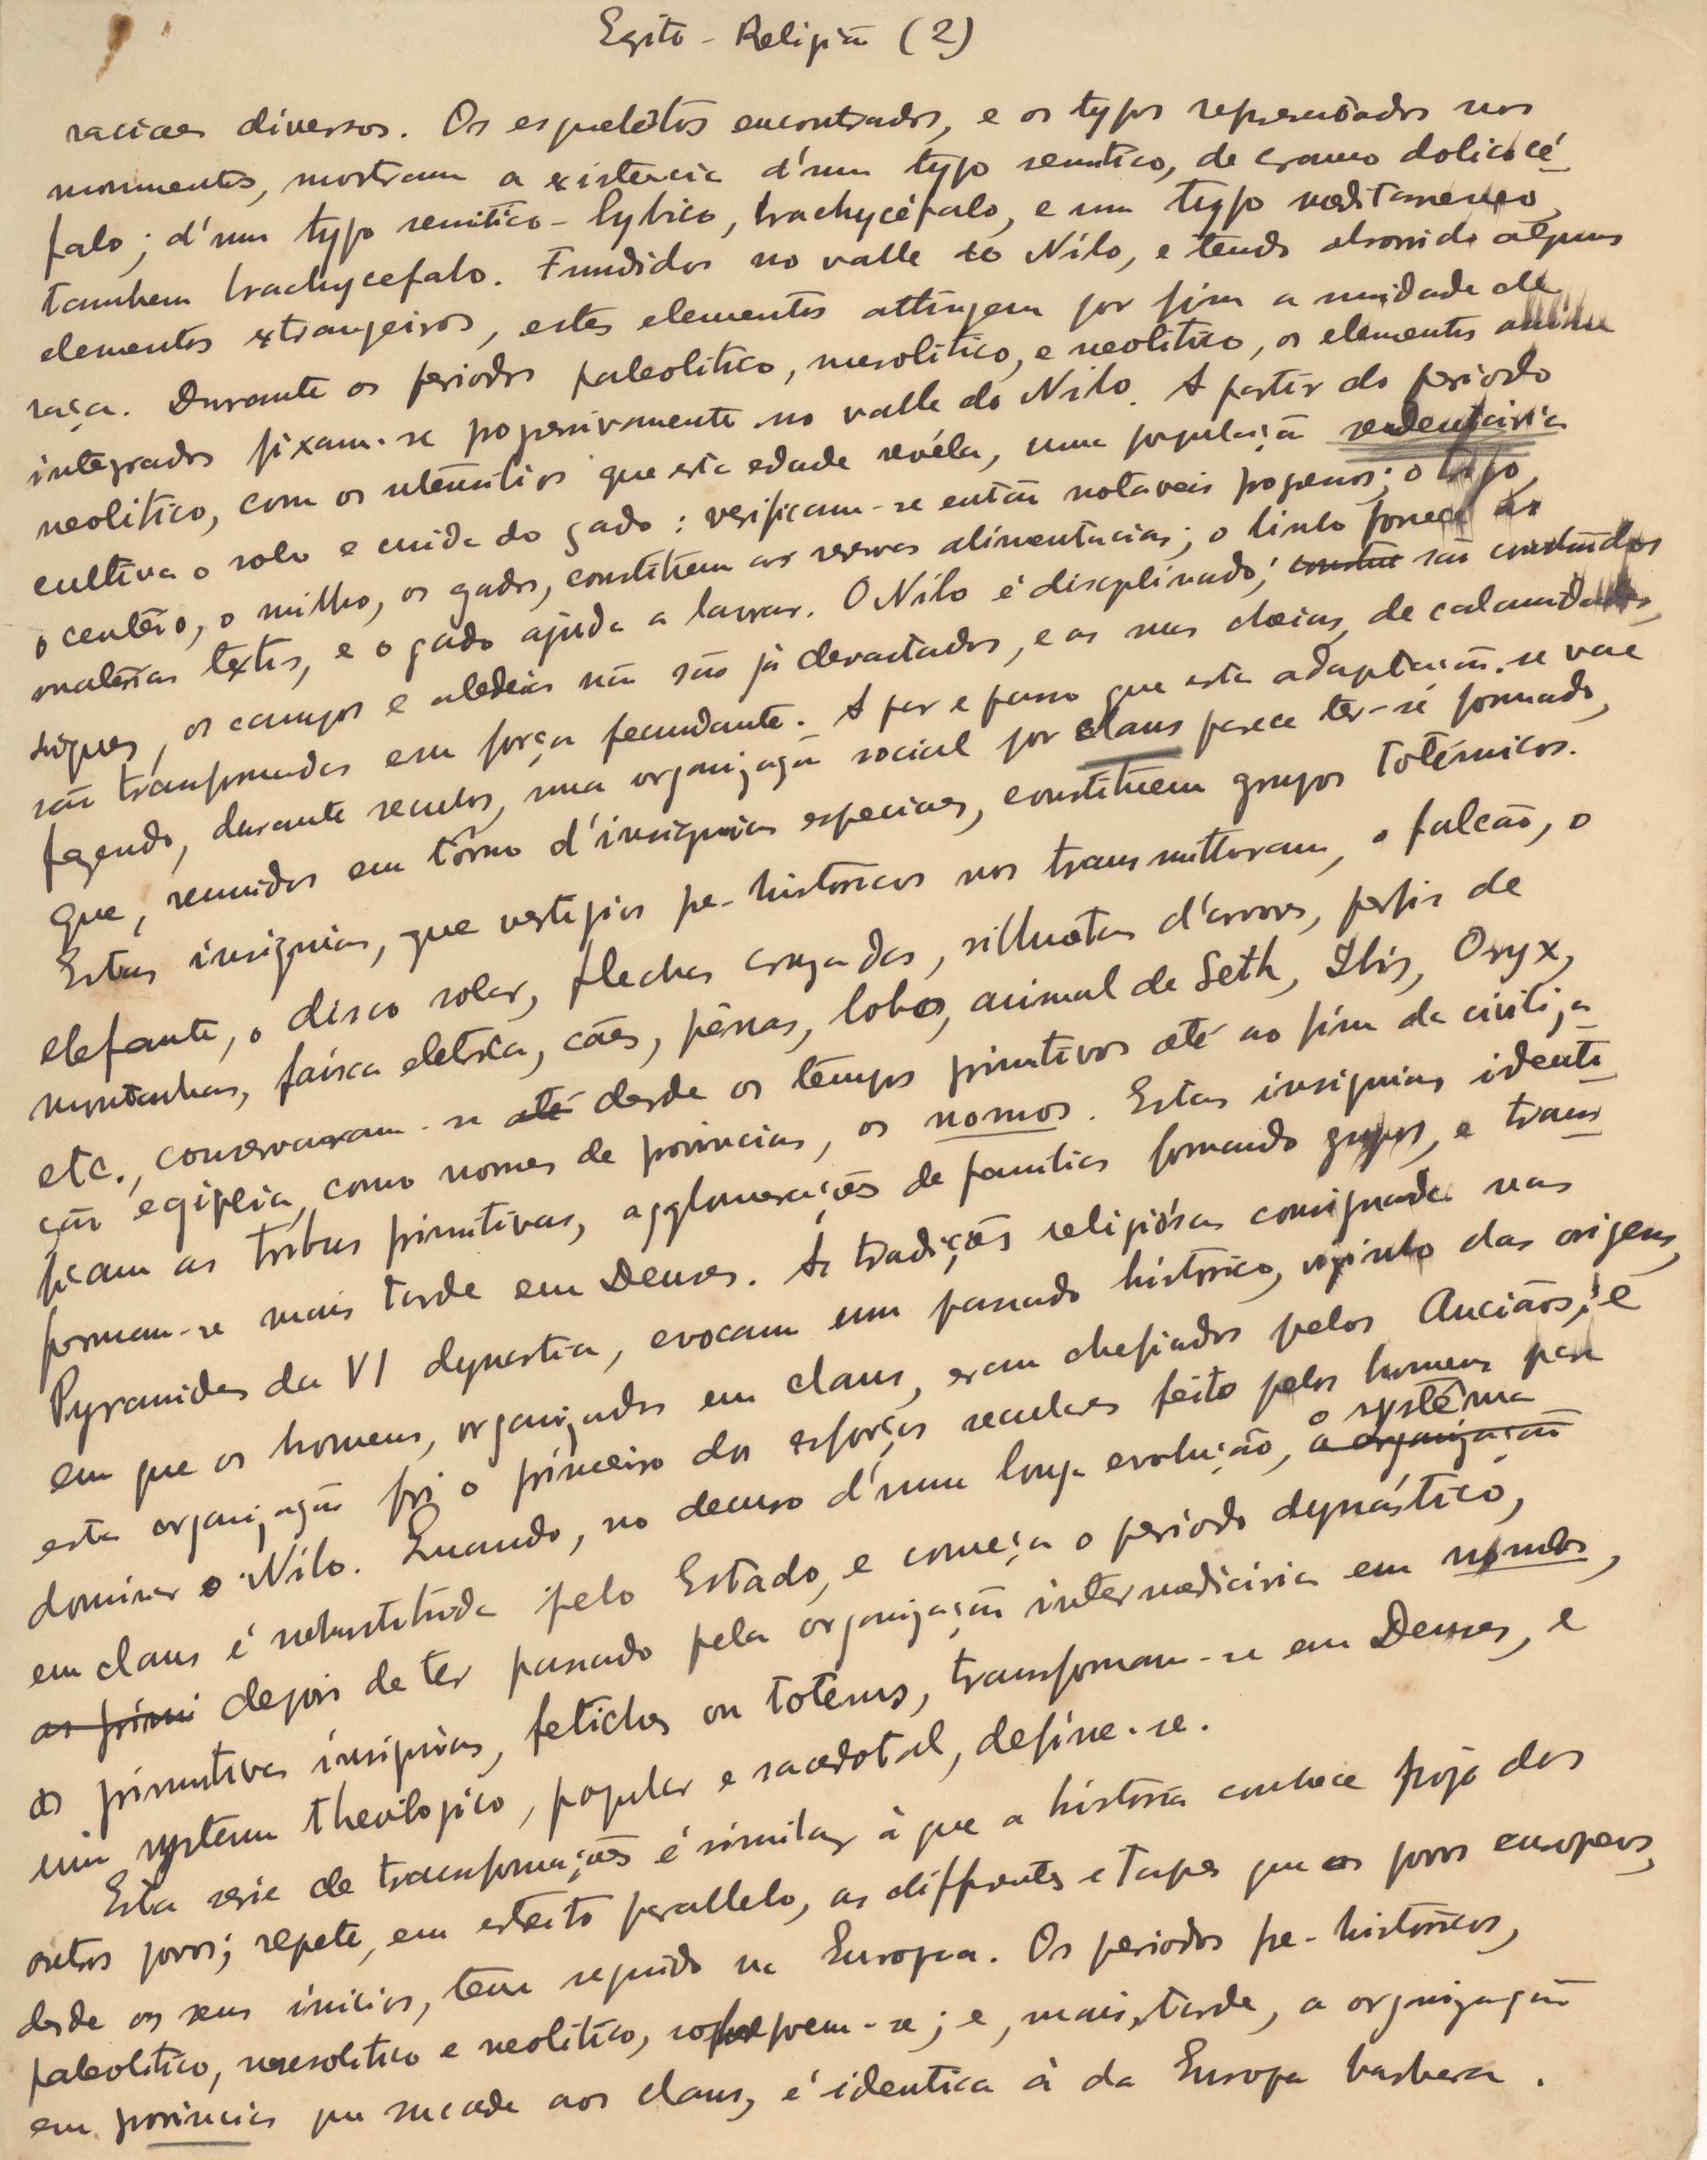 Egito - Religião (2)
raciaes diversos. Os esqueletos encontrados, e os typos representados nos
monumentos, mostram a existencia d'um typo semitico, de craneo dolicocé-
falo; d'um typo semitico-lybico, brachycéfalo, e um typo mediterraneo,
tambem brachycefalo. Fundidos no valle do Nilo, e tendo absorvido alguns
elementos extrangeiros, estes elementos attingem por fim a unidade de
raça. Durante os periodos paleolitico, mesolitico, e neolitico, os elementos assim
integrados fixam-se progressivamente no valle do Nilo. A partir do periodo
neolitico, com os utensilios que esta edade revéla, uma população sedentaria
cultiva o solo e cuida do gado: verificam-se então notaveis progressos; o trigo,
o centeio, o milho, os gados, constituem as reservas alimentacias; o linho fornece as
materias textis, e o gado ajuda a lavrar. O Nilo é disciplinado; constru são construidos
diques, os campos e aldeias não são já devastados, e as suas cheias, de calamidades,
são transformadas em força fecundante. A par e passo que esta adaptação se vae
fazendo, durante seculos, uma organização social por clans parece ter-se formado,
que, reunidos em tôrno d'insignias especiaes, constituem grupos totémicos.
Estas insignias, que vestigios pre-historicos nos transmittiram, o falcão, o
elefante, o disco solar, flechas cruzadas, silhuetas d'arvores, perfis de
montanhas, faisca eletrica, cães, pênas, lobos, animal de Seth, Ibis, Oryx,
etc., conservaram-se até desde os tempos primitivos até ao fim da civiliza-
ção egipcia, como nomes de provincias, os nomos. Estas insignias identi-
ficam as tribus primitivas, agglomerações de familias formando grupos, e trans-
formam-se mais tarde em Deuses. As tradições religiósas consignadas nas
Pyramides da VI dynastia, evocam um passado historico, vizinho das origens,
em que os homens, organizados em clans, eram chefiados pelos Anciãos; e
esta organização foi o primeiro dos esforços seculares feito pelos homens para
dominar o Nilo. Quando, no decurso d'uma longa evolução, a organização o systêma
em clans é substituida pelo Estado, e começa o periodo dynástico,
as primi depois de ter passado pela organização intermediária em nomos,
as primitivas insignias, fetiches ou totems, transformam-se em Deuses, e
um systema theologico, popular e sacerdotal, define-se.
Esta serie de transformações é similar à que a historia conhece hoje dos
outros povos; repete, em estreito parallelo, as differentes etapes que os povos europeus,
desde os seus inicios, têm seguido na Europa. Os periodos pre-historicos,
paleolitico, mesolitico e neolitico, sobrepoem-se; e, mais tarde, a organização
em provincias que sucede aos clans, é identica à da Europa barbara.